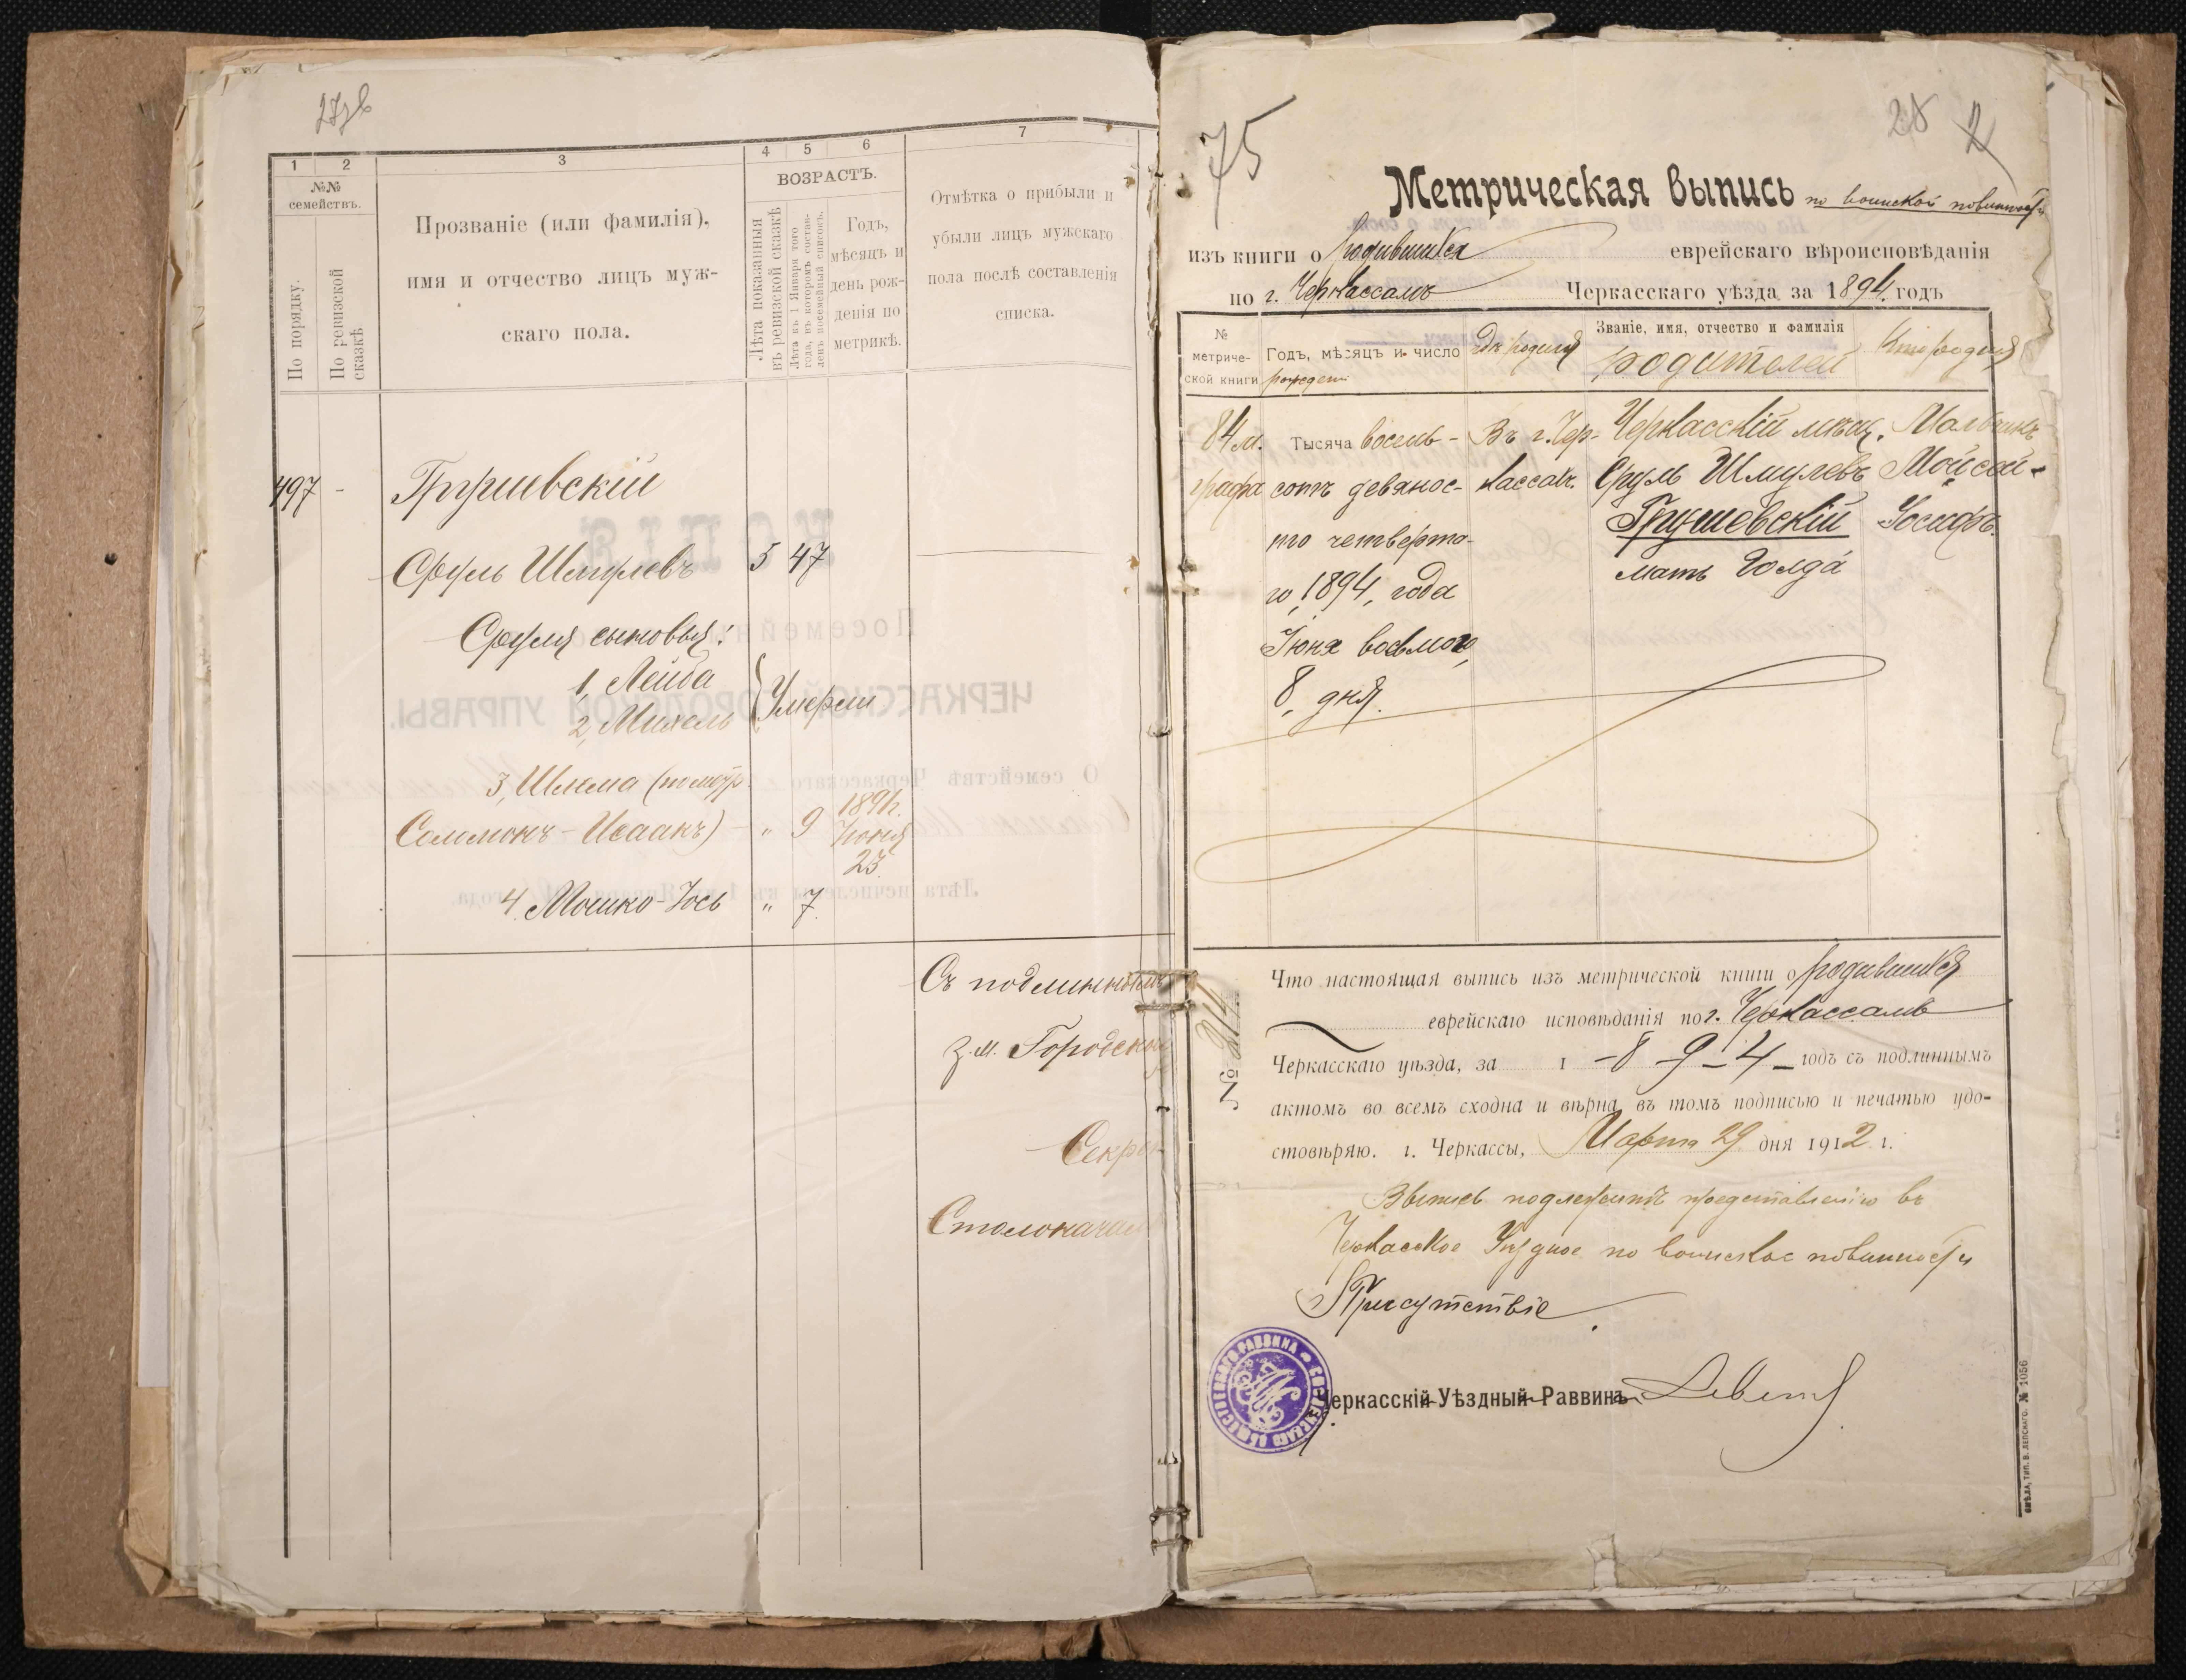 1
2
3
4
5
6
7
№№
семействъ.
ВОЗРАСТЪ.
По порядку.
По ревизской сказкѣ
Прозваніе (или фамилія),
имя и отчество лицъ муж-
скаго пола.
Лѣта показанныя
въ ревизской сказкѣ
Лѣта къ 1 Января того
года, въ которомъ состав-
ленъ посемейный списокъ.
Годъ,
мѣсяцъ и
день рож-
денія по
метрикѣ.
Отмѣтка о прибыли и
убыли лицъ мужскаго
пола послѣ составленія
списка.
497 - Грушевскій
Сруль Шмулевъ 5 47
Сруля сыновья:
1, Лейба
2, Михель
Умерли
3, Шлема (по метр.
Соломонъ-Исаакъ) " 9 189
Іюня
23.
4. Мошко-Іось " 7.
Съ подлиннымъ
З. М. Городск
Секрет
Столоначал
75
28
Метрическая выпись по воинской повинности
изъ книги о родившихся еврейскаго вѣроисповѣданія
по г. Черкассамъ Черкасскаго уѣзда за 1894 годъ
№
метриче-
ской книги
Годъ, мѣсяцъ и число
рожден
Гдѣ родился
Званіе, имя, отчество и фамилія
родителей
Кто родился
84 м. Тысяча восемь- Въ г. Чер- Черкасскій мѣщ. Мальчикъ
графа сотъ девянос- кассахъ. Сруль Шмулевъ Мойсей-
то четверта- Грушевскій Іосифъ.
го, 1894, года мать Голда
Іюня восьмого,
8, дня.
Что настоящая выпись изъ метрической книги о родившихся
еврейскаго исповѣданія по г. Черкассамъ
Черкасскаго уѣзда, за 1 -8-9-4- годъ съ подлиннымъ
актомъ во всемъ сходна и вѣрна, въ томъ подписью и печатью удо-
стовѣряю. г. Черкассы, Марта 29 дня 1912 г.
№
Выпись подлежитъ представленію въ
Черкасское Уѣздное по воинской повинности
Присутствіе.
Черкасскій Уѣздный Раввинъ
СМѢЛА, ТИП. В. ЛЕПСКАГО. № 1056